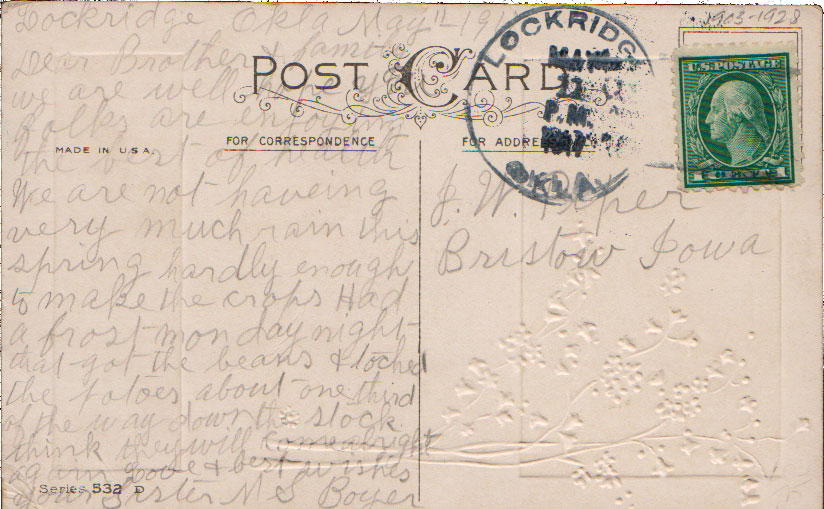 1903-1928
Lockridge Okla May 11-191
Dear Brother & family
we are well hope you
folks are enjoying
the best of health
We are not haveing
very much rain this
spring hardly enough
to make the crops Had
a frost monday night
that got the beans & toched
the totoes about one third
of the way down the stock
think they will come alright
again Love & best wishes
your sister M S Boyer
POST CARD
FOR CORRESPONDENCE
FOR ADDRESS
MADE IN U.S.A.
LOCKRIDGE
MAY
11
P.M.
1917
OKLA.
U.S. POSTAGE
CENTS
J. W. Piper
Bristow Iowa
Series 532 D